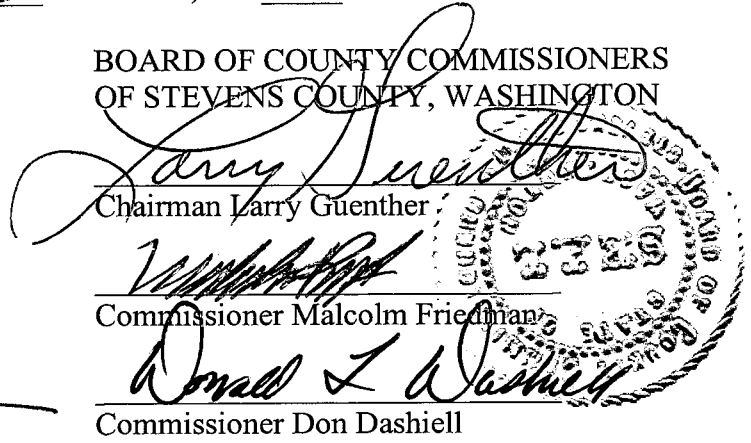 BOARD OF COUNTY COMMISSIONERS
OF STEVENS COUNTY, WASHINGTON
Larry Guenther
Chairman Larry Guenther
Commissioner Malcolm Friedman
Donald L Dashiell
Commissioner Don Dashiell
BOARD OF
SEAL
STATE O